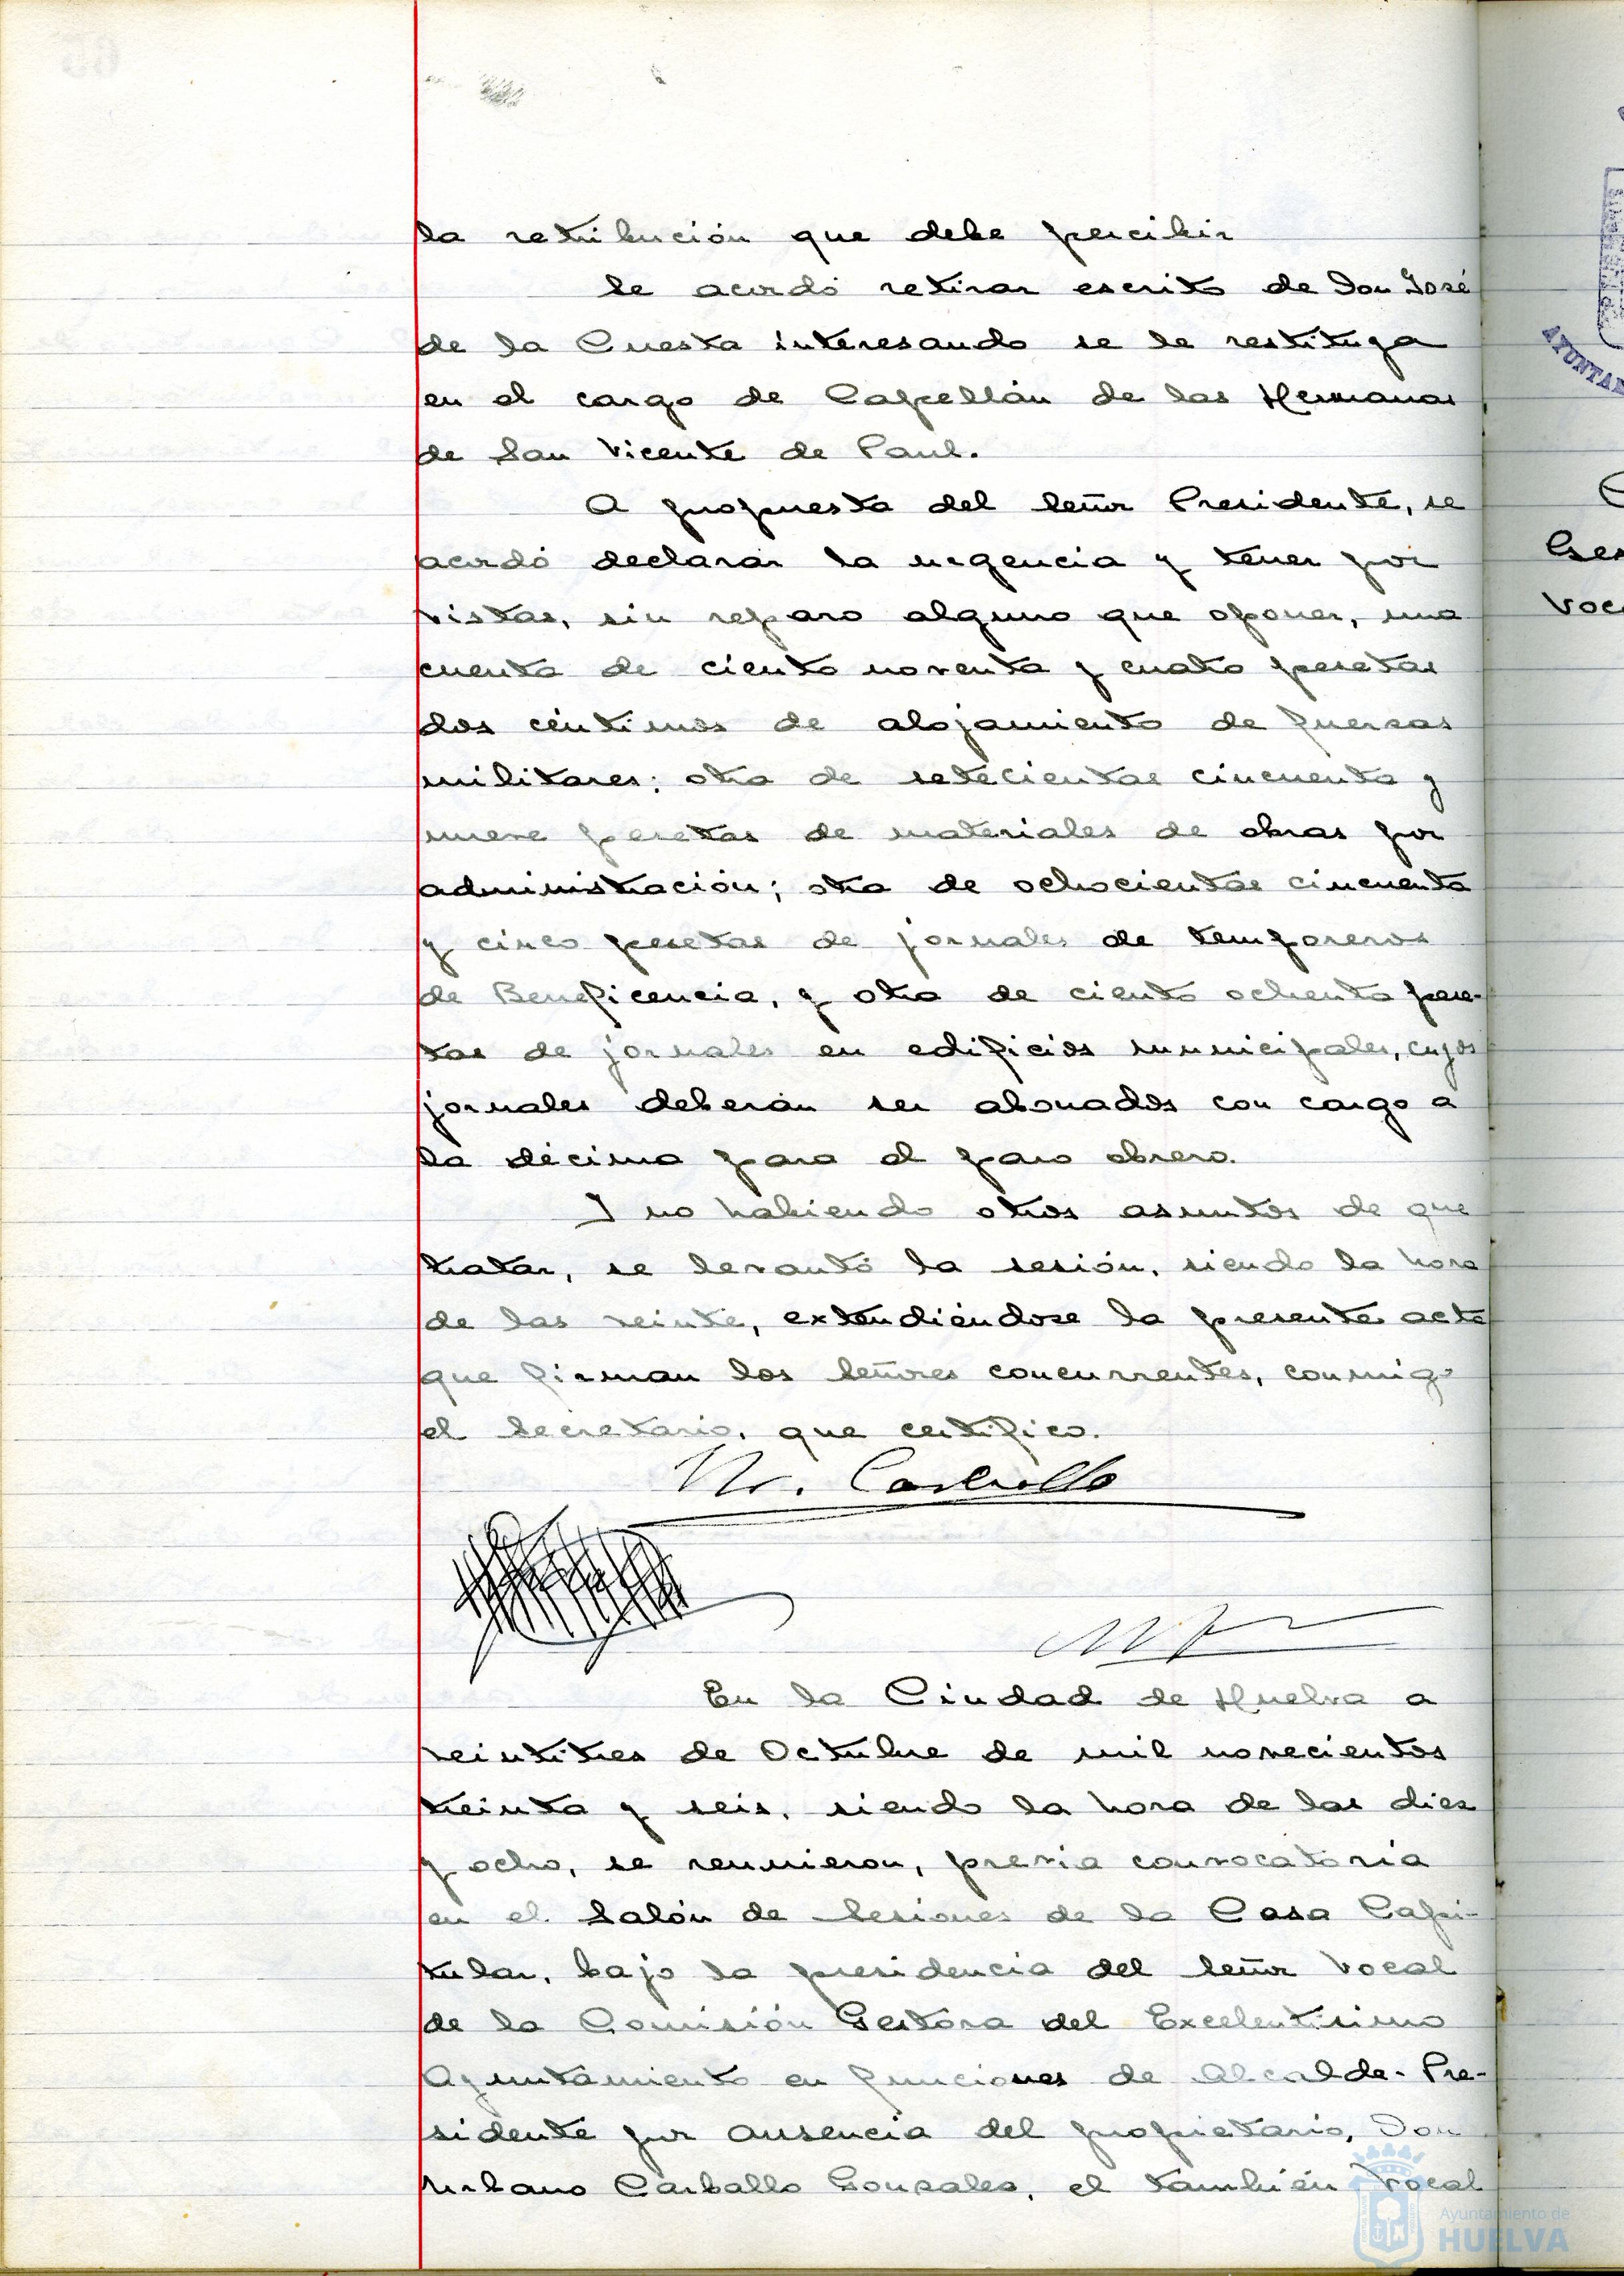 la retribución que debe percibir
Se acordó retirar escrito de Don José
de la Cuesta interesando se le restituya
en el cargo de Capellán de las Hermanas
de San Vicente de Paul.
A propuesta del Señor Presidente, se
acordó declarar la urgencia y tener por
vistas, sin reparo alguno que oponer, una
cuenta de ciento noventa y cuatro pesetas
dos céntimos de alojamiento de fuerzas
militares; otra de setecientas cincuenta y
nueve pesetas de materiales de obras por
administración; otra de ochocientas cincuenta
y cinco pesetas de jornales de temporeros
de Beneficencia, y otra de ciento ochenta pese-
tas de jornales en edificios municipales, cuyos
jornales deberán ser abonados con cargo a
la décima para el paro obrero.
Y no habiendo otros asuntos de que
tratar, se levantó la sesión, siendo la hora
de las veinte, extendiéndose la presente acta
que firman los Señores concurrentes, conmigo
el Secretario, que certifico.
Carballo
En la Ciudad de Huelva a
veintitres de Octubre de mil novecientos
treinta y seis, siendo la hora de las diez
y ocho, se reunieron, previa convocatoria
en el Salón de Sesiones de la Casa Capi-
tular, bajo la presidencia del Señor Vocal
de la Comisión Gestora del Excelentísimo
Ayuntamiento en funciones de Alcalde-Pre-
sidente por ausencia del propietario, Don
Urbano Carballo Gonzales, el también Vocal
Ayuntamiento de
HUELVA
AYUNTA
Ges
Voc